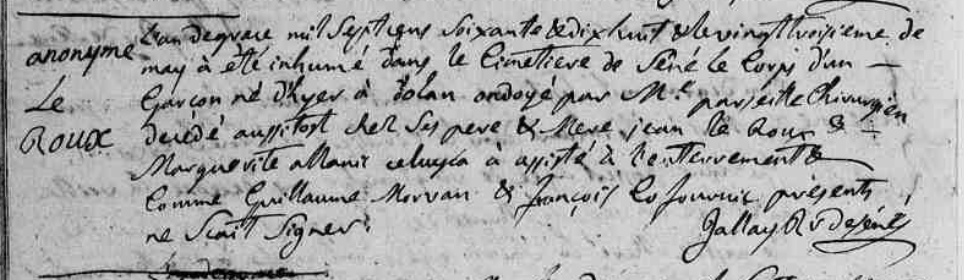 anonyme
Le
Roux
L'an de grace mil Septcens Soixante & dix huit & le vingt troisieme de
may à été inhumé dans le Cimetiere de Séné le Corps d'un
Garçon né d'hyer à dolan ondoyé par Mr. Chirurgien
decédé aussitost chez Ses pere & Mere jean le Roux &
Marguerite allanic celuyci à assisté à l'enterrement &
Comme Guillaume Morvan & françois présents
ne Scait Signer.
Jallay Rr de Séné